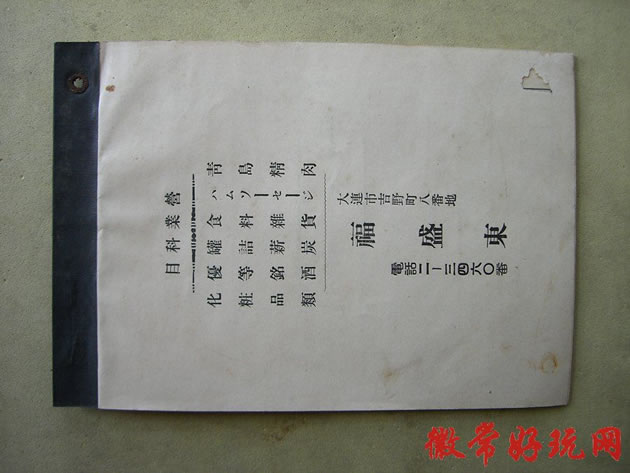 營業科目
青島精肉
ハムソーセージ
食料雜貨
罐詰薪炭
優等銘酒
化粧品類
大連市吉野町八番地
福盛東
電話二－三四六〇番
徽常好玩网